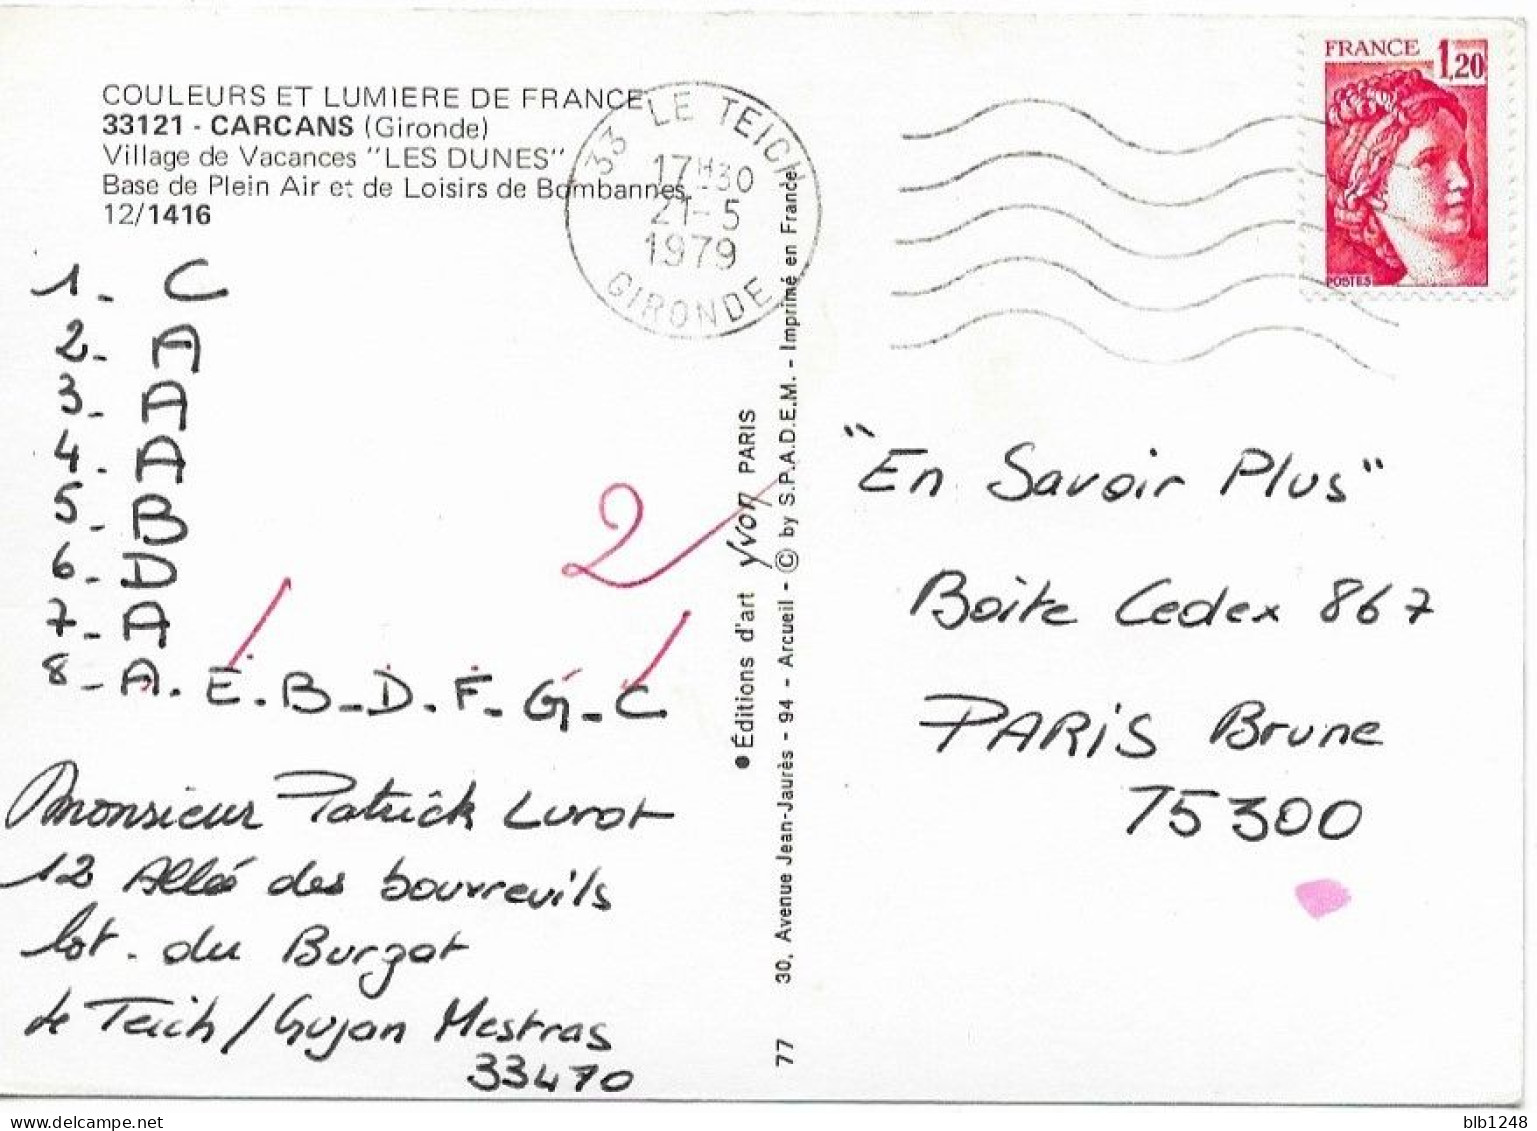 COULEURS ET LUMIERE DE FRANCE
33121 - CARCANS (Gironde)
Village de Vacances "LES DUNES"
Base de Plein Air et de Loisirs de Bombannes
12/1416
33 LE TEICH
17H30
21-5
1979
GIRONDE
FRANCE 1,20
POSTES
1 - C
2 - A
3 - A
4 - A
5 - B
6 - D
7 - A
8 - A. E. B - D. F - G - C
2
Monsieur Patrick Lurot
12 Allée des bouvreuils
lot. du Burgat
le Teich / Gujan Mestras
33470
● Éditions d'art yvon PARIS
77 30, Avenue Jean-Jaurès - 94 - Arcueil - © by S.P.A.D.E.M. - Imprimé en France
"En Savoir Plus"
Boite Cedex 867
PARIS Brune
75300
blb1248